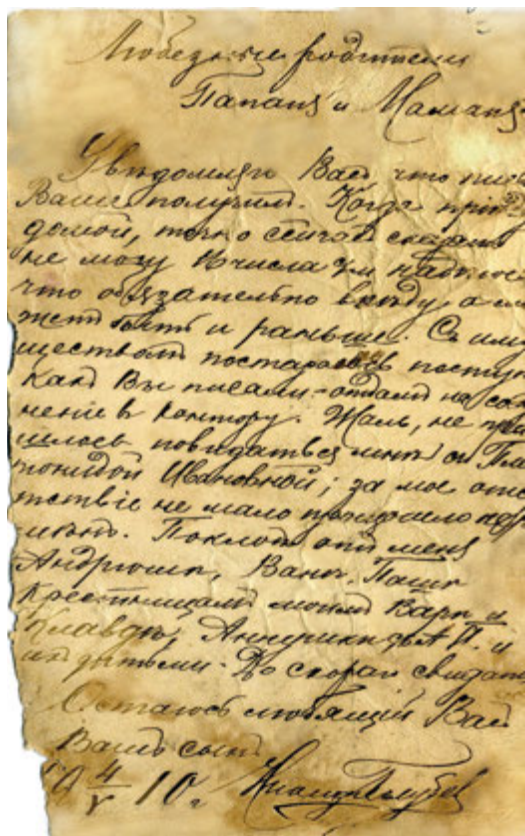 Любезные родители
Папаня и Маманя
Увѣдомляю Васъ что
Ваше получилъ. Когда
домой, точно сейчасъ сказать
не могу
что обязательно выѣду, а
жетъ быть и раньше. Съ иму
ществомъ постараюсь
какъ Вы писали - отдамъ на
неніе въ контору. Жаль, не
шлось повидаться мнѣ съ
Ивановной; за мое отсу
тствіе не мало произошло
Поклонъ отъ меня
Андрюшѣ, Ванѣ, Пашѣ
крестницамъ моимъ Варѣ и
Клавдіѣ, и
ихъ дѣтьми. До скораго свиданія
Остаюсь любящій Васъ
Вашъ сынъ
4
V 10 г.